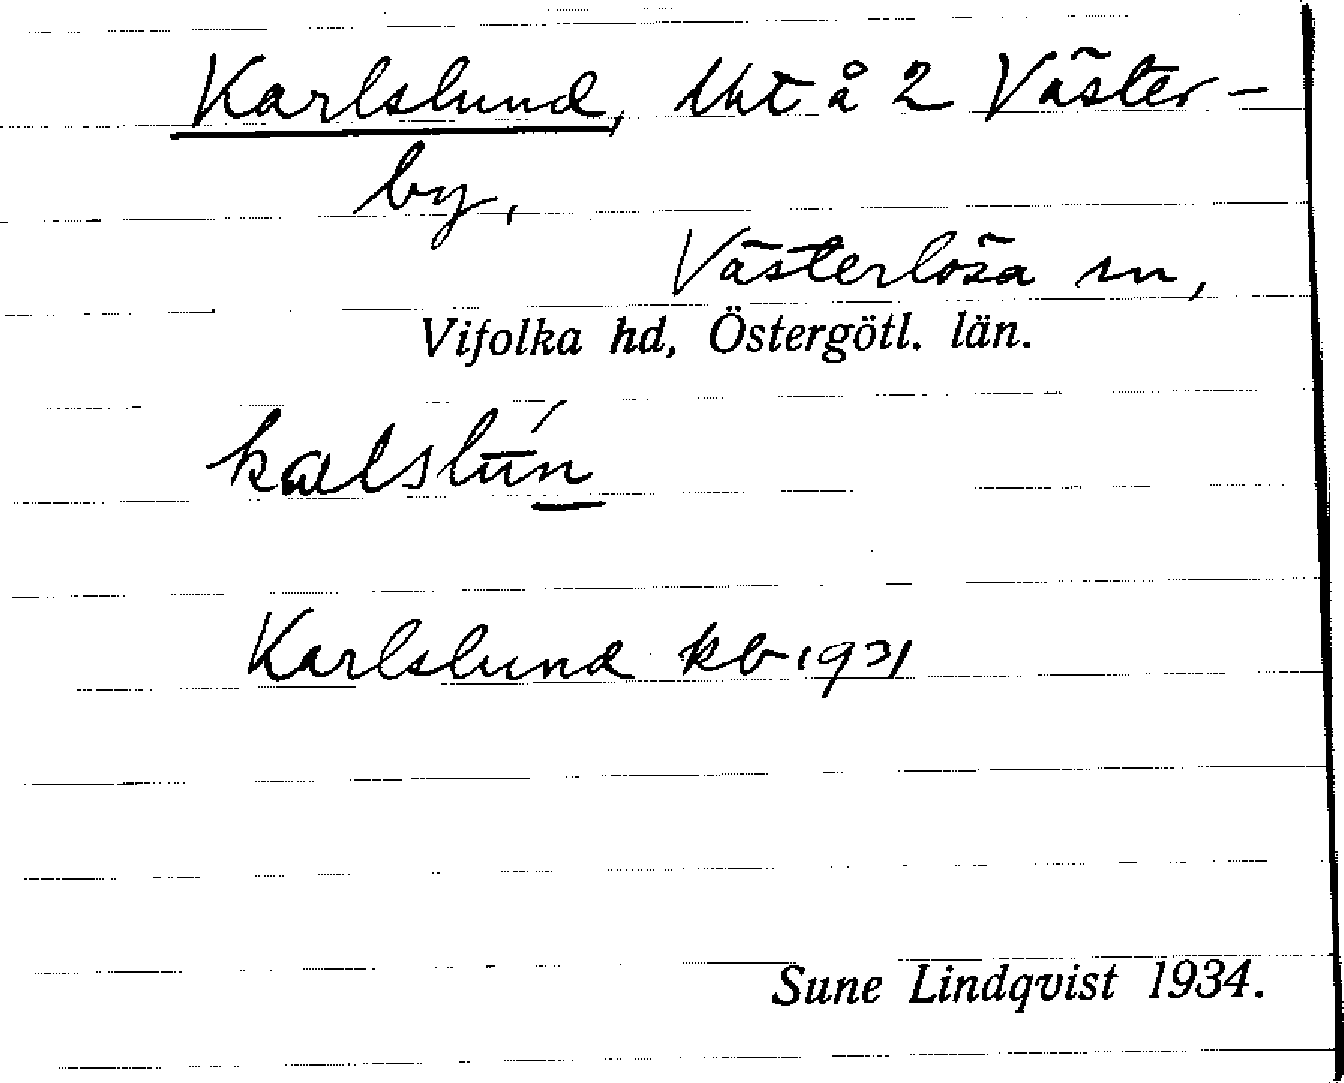 Karlslund, lht å 2 Väster-
by,
Västerlösa sn,
Vifolka hd, Östergötl. län.
kalslún
Karlslund kb 1931
Sune Lindqvist 1934.